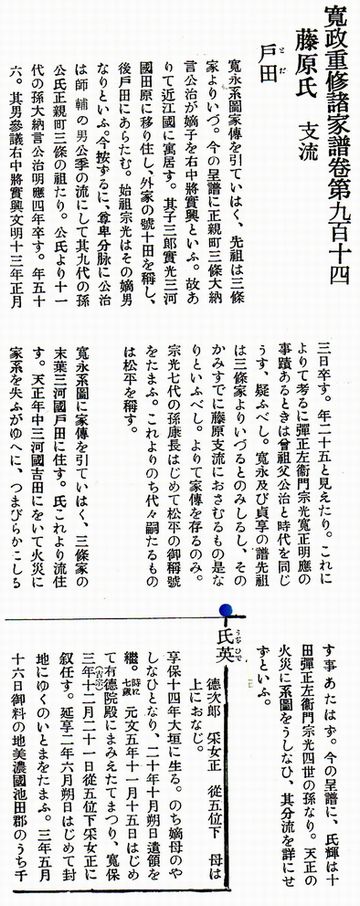 寛政重修諸家譜卷第九百十四
藤原氏　支流
戸田
とだ
寛永系圖家傳を引ていはく、先祖は三條
家よりいづ。今の呈譜に正親町三條大納
言公治が嫡子を右中將實興といふ。故あ
りて近江國に寓居す。其子三郎實光三河
國田原に移り住し、外家の號十田を稱し、
後戸田にあらたむ。始祖宗光はその嫡男
なりといふ。今按ずるに、尊卑分脈に公治
は師輔の男公季の流にして其九代の孫
公氏正親町三條の祖たり。公氏より十一
代の孫大納言公治明應四年卒す。年五十
六。其男參議右中將實興文明十三年正月
三日卒す。年二十五と見えたり。これに
よりて考るに彈正左衞門宗光寛正明應の
事蹟あるときは曾祖父公治と時代を同じ
うす、疑ふべし。寛永及び貞享の譜先祖
は三條家よりいづるとのみしるし、その
かみすでに藤原支流におさむるもの是な
りといふべし。よりて家傳を存るのみ。
宗光七代の孫康長はじめて松平の御稱號
をたまふ。これよりのち代々嗣たるもの
は松平を稱す。
寛永系圖に家傳を引ていはく、三條家の
末葉三河國戸田に住す。氏これより流住
す。天正年中三河國吉田にをいて火災に
家系を失ふがゆへに、つまびらかにしる
す事あたはず。今の呈譜に、氏輝は十
田彈正左衞門宗光四世の孫なり。天正の
火災に系圖をうしなひ、其分流を詳にせ
ずといふ。
氏英
うぢひで
德次郎　采女正　從五位下　母は
上におなじ。
享保十四年大垣に生る。のち嫡母のや
しなひとなり、二十年十月朔日遺領を
繼。時に七歲 元文五年十一月十五日はじめ
て有德院殿（吉宗）にまみえたてまつり、寛保
三年十二月二十一日從五位下采女正に
叙任す。延享二年六月朔日はじめて封
地にゆくのいとまをたまふ。三年五月
十六日御料の地美濃國池田郡のうち千